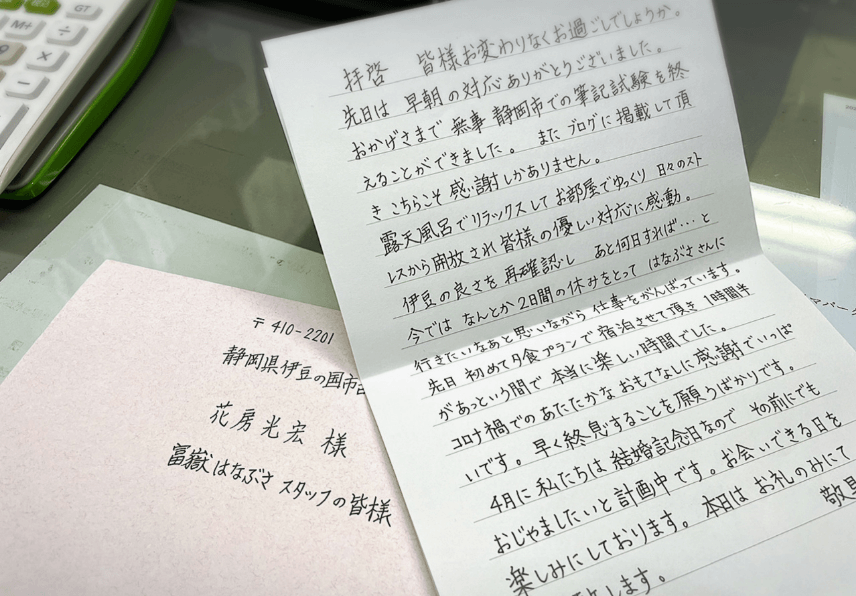 拝啓 皆様お変わりなくお過ごしでしょうか。
先日は 早朝の対応ありがとうございました。
おかげさまで 無事 静岡市での筆記試験を終
えることができました。 またブログに掲載して頂
き こちらこそ 感謝しかありません。
露天風呂でリラックスしてお部屋でゆっくり 日々のスト
レスから開放され 皆様の優しい対応に感動。
伊豆の良さを 再確認し あと何日すれば…と
今では なんとか 2日間の休みをとって はなぶささんに
行きたいなあと思いながら 仕事をがんばっています。
先日 初めて夕食プランで 宿泊させて頂き 1時間半
があっという間で 本当に楽しい時間でした。
コロナ禍でのあたたかな おもてなしに感謝でいっぱ
いです。早く終息することを願うばかりです。
4月に 私たちは 結婚記念日なので その前にでも
おじゃましたいと計画中です。お会いできる日を
楽しみにしております。本日は お礼のみにて
します。
敬具
〒410-2201
静岡県伊豆の国市
花房光宏 様
富嶽はなぶさ スタッフの皆様
M+
GT
÷
×
−